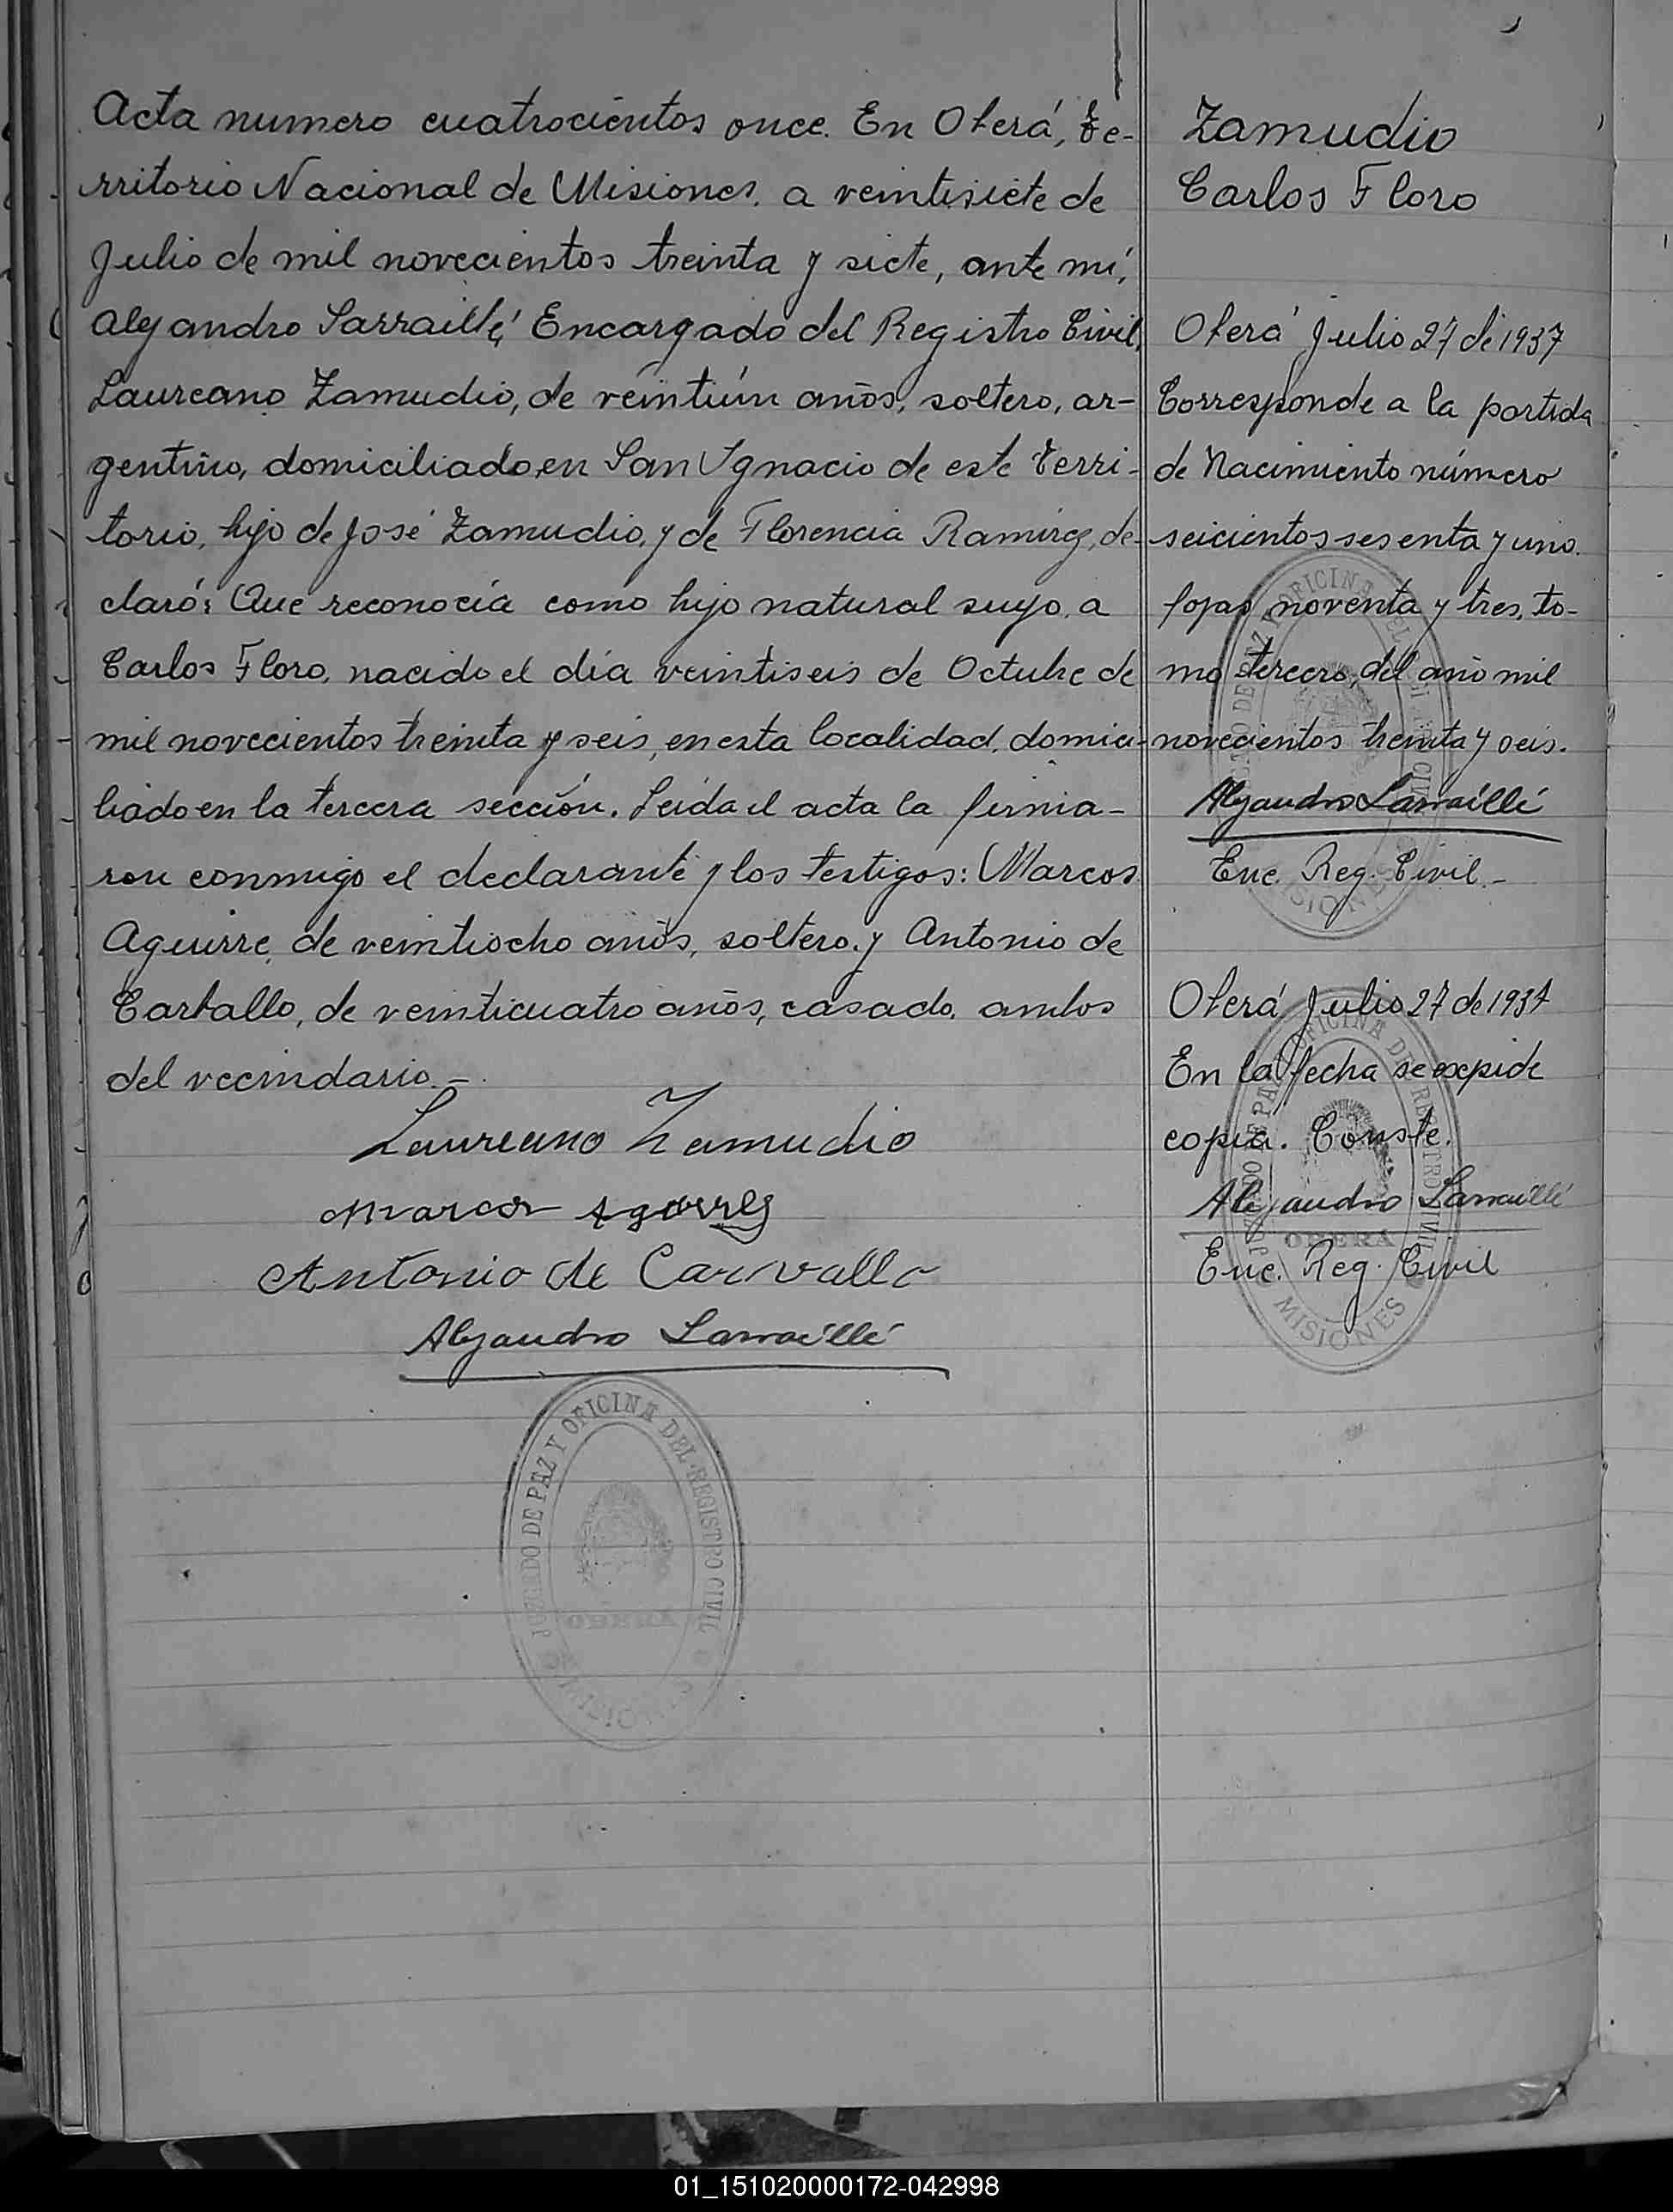 Acta numero cuatrocientos once. En Oberá, Te-
rritorio Nacional de Misiones, a veintisiete de
Julio de mil novecientos treinta y siete, ante mí,
Alejandro Sarraillé, Encargado del Registro Civil,
Laureano Zamudio, de veintiún años, soltero, ar-
gentino, domiciliado en San Ignacio de este Terri-
torio, hijo de José Zamudio, y de Florencia Ramirez, de-
claró: Que reconocía como hijo natural suyo, a
Carlos Floro, nacido el día veintiseis de Octubre de
mil novecientos treinta y seis, en esta localidad, domici-
liado en la tercera sección. Leida el acta la firma-
ron conmigo el declarante y los testigos: Marcos
Aguirre, de veintiocho años, soltero, y Antonio de
Carballo, de veinticuatro años, casado, ambos
del vecindario.-
Laureano Zamudio
Marcos
Antonio de Carvallo
Alejandro Sarraillé
JUZGADO DE PAZ Y OFICINA DEL REGISTRO CIVIL
Zamudio
Carlos Floro
Oberá Julio 27 de 1937
Corresponde a la partida
de Nacimiento número
seicientos sesenta y uno.
fojas noventa y tres, to-
mo tercero, del año mil
novecientos treinta y seis.
Alejandro Sarraillé
Enc. Reg. Civil.-
Oberá Julio 27 de 1937
En la fecha se expide
copia. Conste.
Alejandro Sarraillé
Enc. Reg. Civil
OBERA
MISIONES
01_151020000172-042998